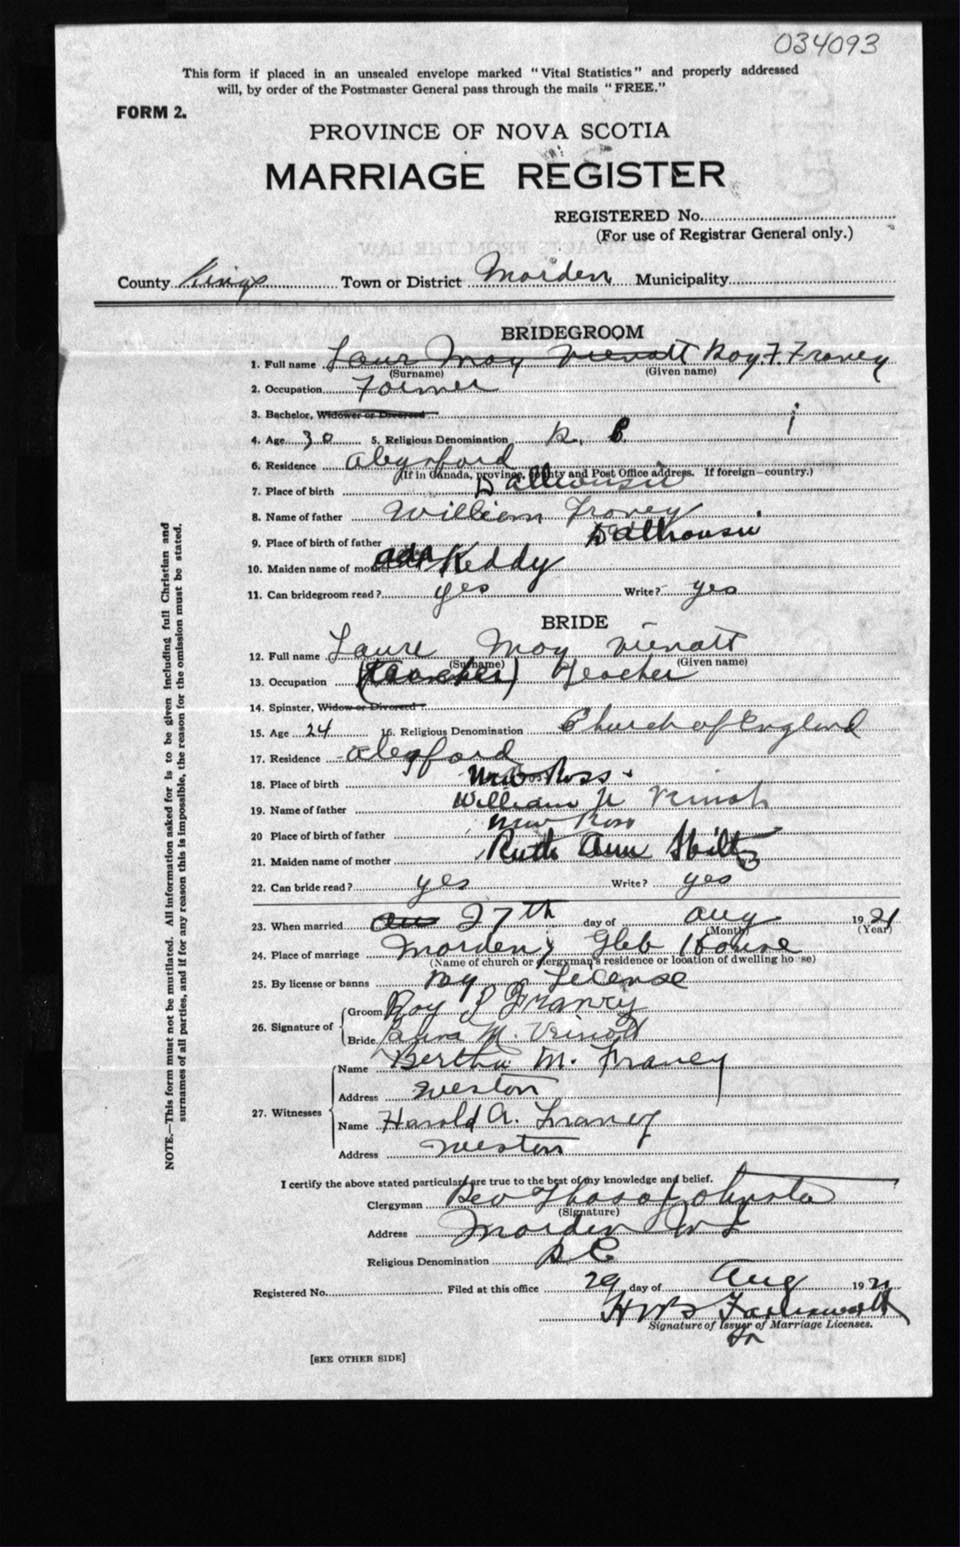 034093
This form if placed in an unsealed envelope marked "Vital Statistics" and properly addressed
will, by order of the Postmaster General pass through the mails "FREE."
FORM 2.
PROVINCE OF NOVA SCOTIA
MARRIAGE REGISTER
REGISTERED No.
(For use of Registrar General only.)
County Kings Town or District Morden Municipality
BRIDEGROOM
1. Full name Laur May Vienott Roy. F. Franey
(Surname) (Given name)
2. Occupation Farmer
3. Bachelor, Widower or Divorced
4. Age 30 5. Religious Denomination R. C
6. Residence Alysford
(If in Canada, province, County and Post Office address. If foreign—country.)
7. Place of birth Dalhousie
8. Name of father William Franey
9. Place of birth of father Dalhousie
10. Maiden name of mother Ada Keddy
11. Can bridegroom read? yes Write? yes
BRIDE
12. Full name Laure May Vienott
(Surname) (Given name)
13. Occupation (Teacher) Teacher
14. Spinster, Widow or Divorced
15. Age 24 16. Religious Denomination Church of England
17. Residence Alysford
18. Place of birth New Ross
19. Name of father William
20 Place of birth of father New Ross
21. Maiden name of mother Ruth Ann
22. Can bride read? yes Write? yes
23. When married 27th day of Aug 1921
(Month) (Year)
24. Place of marriage Morden, Gleb House
(Name of church or clergyman's residence or location of dwelling house)
25. By license or banns By License
26. Signature of
Groom Roy Franey
Bride M. Veinott
27. Witnesses
Name Bertha M. Franey
Address Weston
Name Harold A. Franey
Address Weston
I certify the above stated particulars are true to the best of my knowledge and belief.
Clergyman Rev Thos
(Signature)
Address Morden N S
Religious Denomination R C
Registered No. Filed at this office 29 day of Aug 1921
Signature of Issuer of Marriage Licenses.
[SEE OTHER SIDE]
NOTE.—This form must not be mutilated. All information asked for is to be given including full Christian and
surnames of all parties, and if for any reason this is impossible, the reason for the omission must be stated.